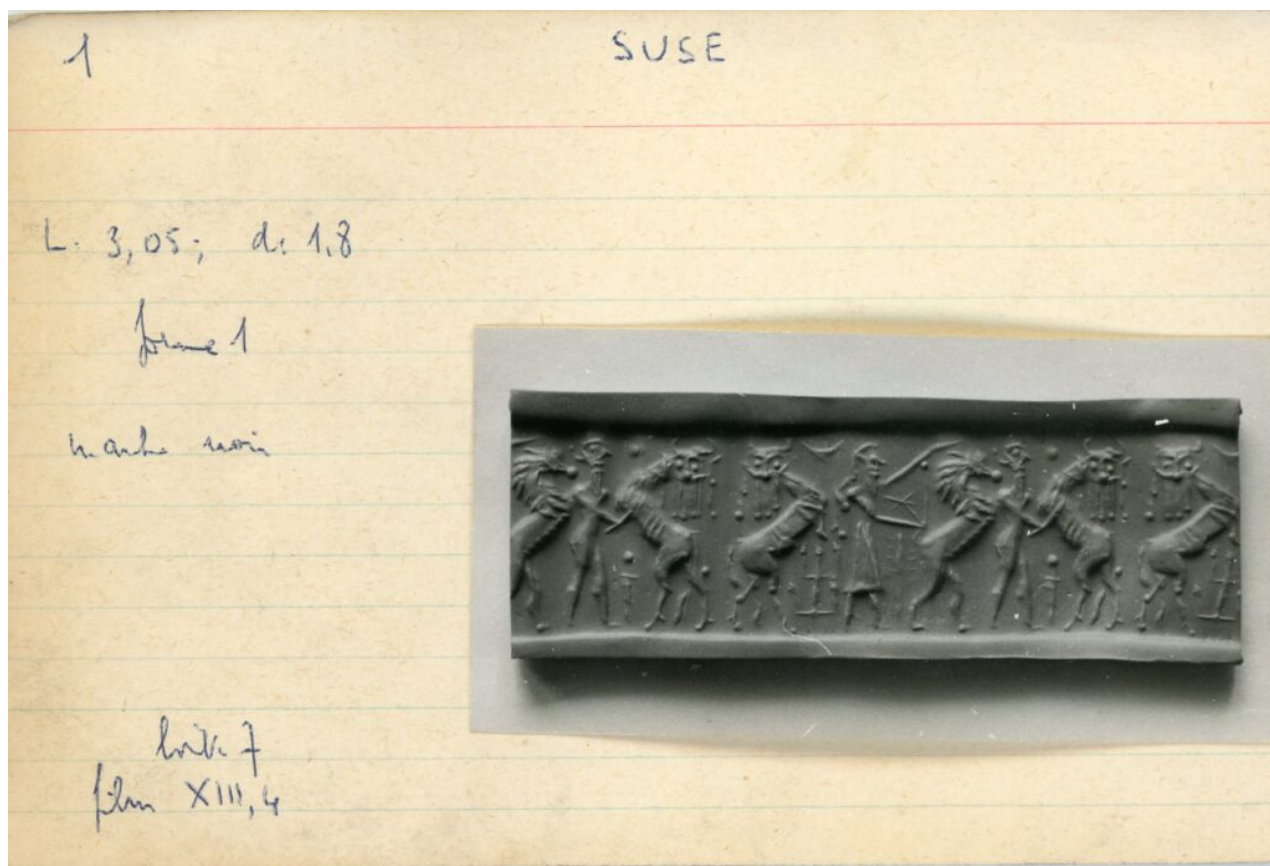 1
SUSE
L. 3,05; d. 1,8
forme 1
marbre noir
boîte 7
film XIII, 4